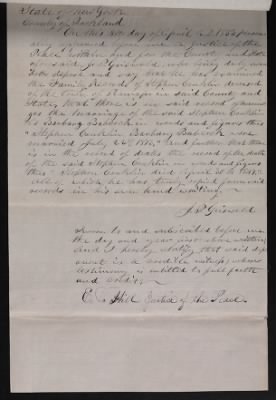 State of New York
County of Rockland
On this day of April A.D. 1855 person
ally appeared before me a Justice of the
Peace within and for the County and State
afore said, J. P. Griswold, who being duly sworn
doth depose and say that he has examined
the Family Records of Stephen Conklin deceased
of the town of in said County and
State, that there is in said record
the marriage of the said Stephen Conklin
to Barbary Babcock in words and figures thus
"Stephen Conklin Barbary Babcock were
married July 1812," And further that there
is in the record of deaths the record of the death
of the said Stephen Conklin in words and figures
thus "Stephen Conklin died April 30th
All of which he has truly copied from said
records in his own hand writing.
J. P. Griswold
Sworn to and subscribed before me
the day and year first above written
and I hereby certify that said dep
onent is a credible witness, whose
testimony is entitled to full faith
and credit.
Hill Justice of the Peace